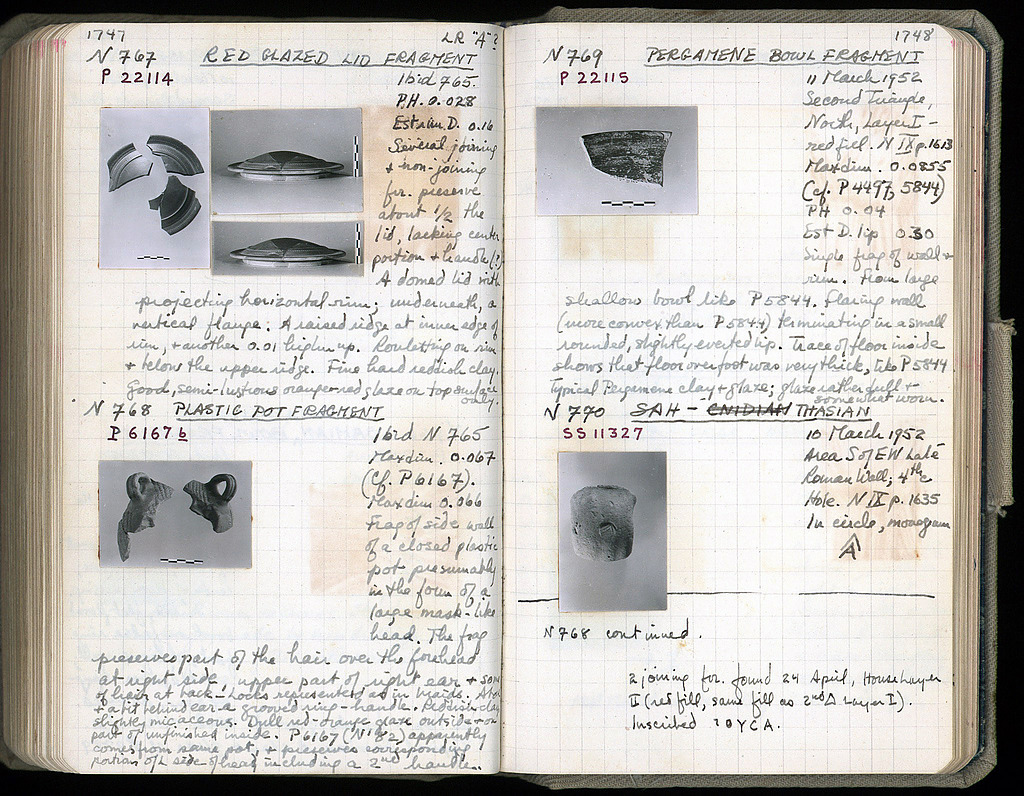 1747
LR "A"?
N 767 RED GLAZED LID FRAGMENT
P 22114
Ibid 765.
P.H. 0.028
Est rim D. 0.16
Several joining
+ non-joining
fr. preserve
about 1/2 the
lid, lacking center
portion + handle (?)
A domed lid with
projecting horizontal rim; underneath, a
vertical flange. A raised ridge at inner edge of
rim, + another 0.01 higher up. Rouletting on rim
+ below the upper ridge. Fine hard reddish clay.
Good, semi-lustrous orange-red glaze on top surface
only.
N 768 PLASTIC POT FRAGMENT
P 6167 b
Ibid N 765
Max dim. 0.067
(Cf. P 6167).
Max dim 0.066
Frag of side wall
of a closed plastic
pot presumably
in the form of a
large mask-like
head. The frag
preserves part of the hair over the forehead
at right side, upper part of right ear + some
of hair at back. Locks represented as in braids. Above
+ a bit behind ear a grooved ring-handle. Reddish clay
slightly micaceous. Dull red-orange glaze outside + on
part of unfinished inside. P 6167 (N 182) apparently
comes from same pot, + preserves corresponding
portion of L side of head including a 2nd handle.
1748
N 769 PERGAMENE BOWL FRAGMENT
P 22115
11 March 1952
Second Triangle,
North, Layer I –
red fill. N IX p. 1613
Max dim. 0.0855
(cf. P 4497, 5844)
PH 0.04
Est D. lip 0.30
Single frag of wall +
rim. From large
shallow bowl like P 5844. Flaring wall
(more convex than P 5844) terminating in a small
rounded, slightly everted lip. Trace of floor inside
shows that floor over foot was very thick, like P 5844
Typical Pergamene clay + glaze; glaze rather dull +
somewhat worn.
N 770 SAH – CNIDIAN THASIAN
SS 11327
10 March 1952
Area S of EW Late
Roman Wall; 4th
Hole. N IX p. 1635
In circle, monogram
A
N 768 continued.
2 joining fr. found 24 April, House Layer
II (red fill, same fill as 2nd Δ Layer I).
Inscribed ΟΥCΑ.